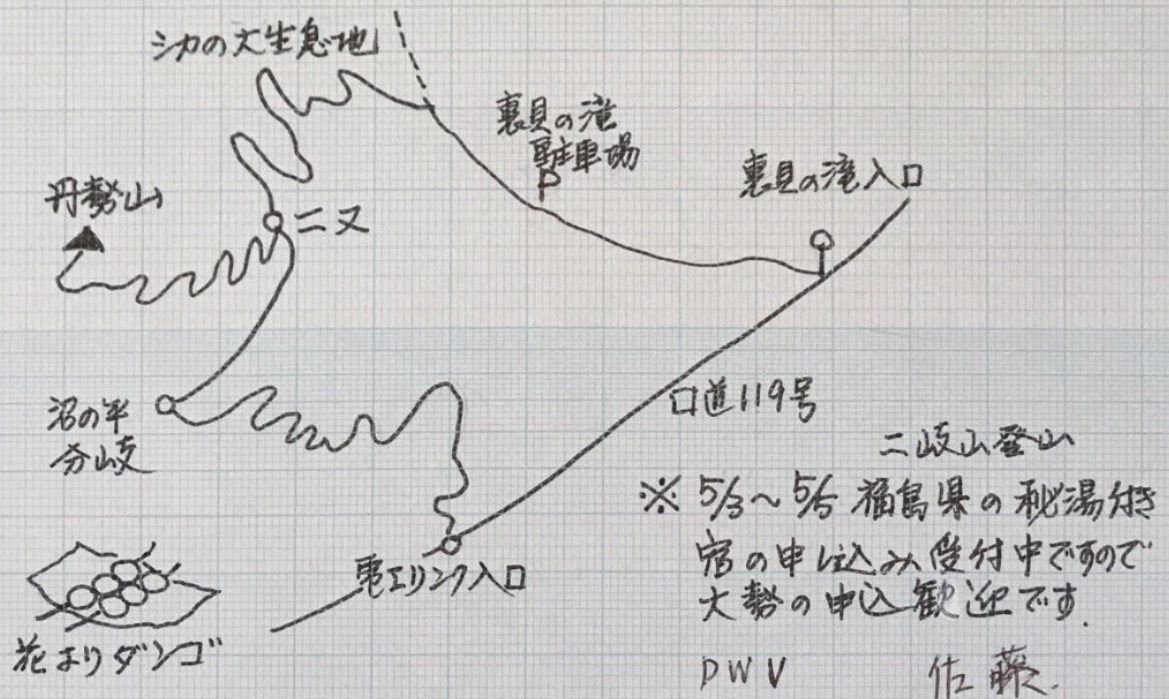 シカの大生息地
裏見の滝
駐車場
P
裏見の滝入口
丹勢山
二又
沼の平
分岐
口道119号
電工リンク入口
花よりダンゴ
二岐山登山
※ 5/3〜5/5 福島県の秘湯付き
宿の申し込み受付中ですので
大勢の申込歓迎です.
DWV 佐藤.